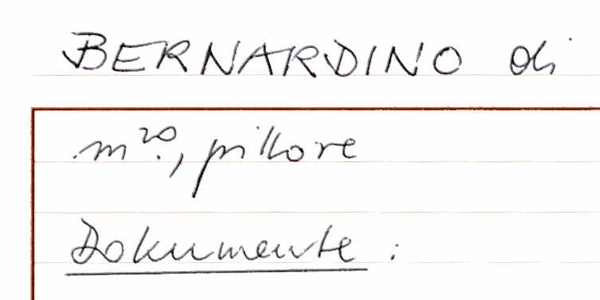 BERNARDINO di
m^ro., pittore
Dokumente :